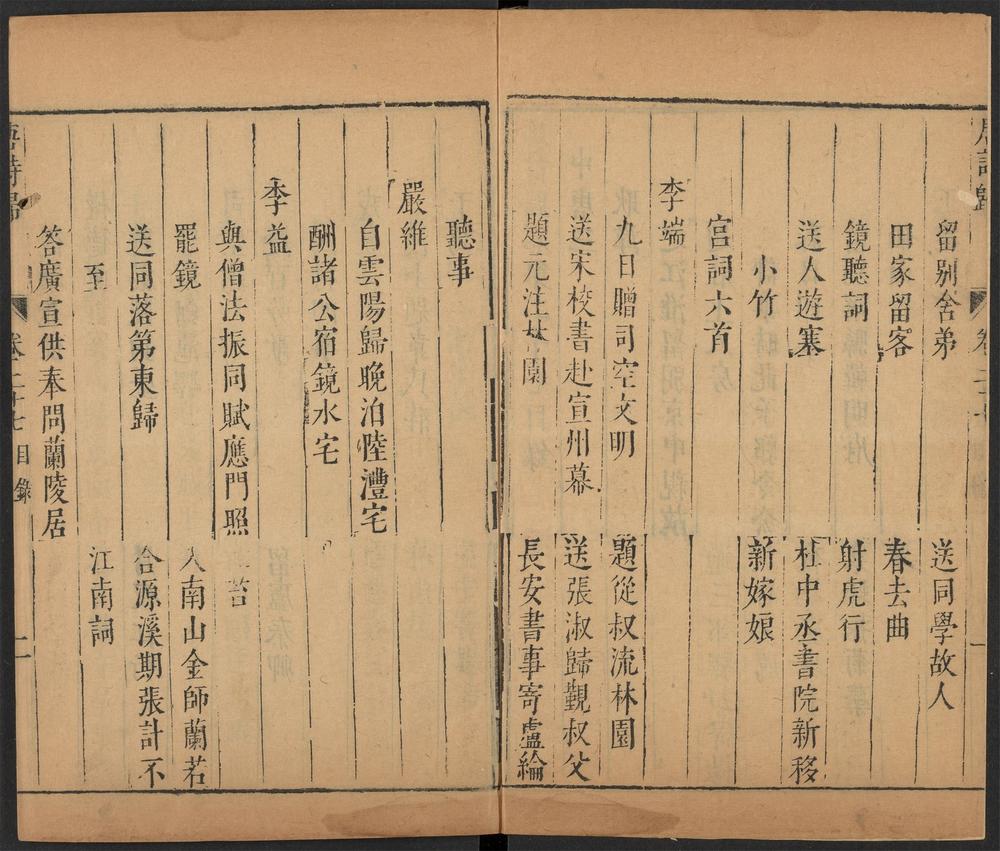 唐詩歸
卷二十七
留別舍弟
送同學故人
田家留客
春去曲
鏡聽詞
射虎行
送人遊塞
杜中丞書院新移
小竹
新嫁娘
宮詞六首
李端
九日贈司空文明
題從叔流林園
送宋校書赴宣州幕
送張淑歸覲叔父
題元注林園
長安書事寄盧綸
聽事
嚴維
自雲陽歸晚泊陸澧宅
酬諸公宿鏡水宅
李益
與僧法振同賦應門照
苔
罷鏡
入南山金師蘭若
送同落第東歸
合源溪期張計不
至
江南詞
答廣宣供奉問蘭陵居
唐詩歸
卷二十七
目錄
二